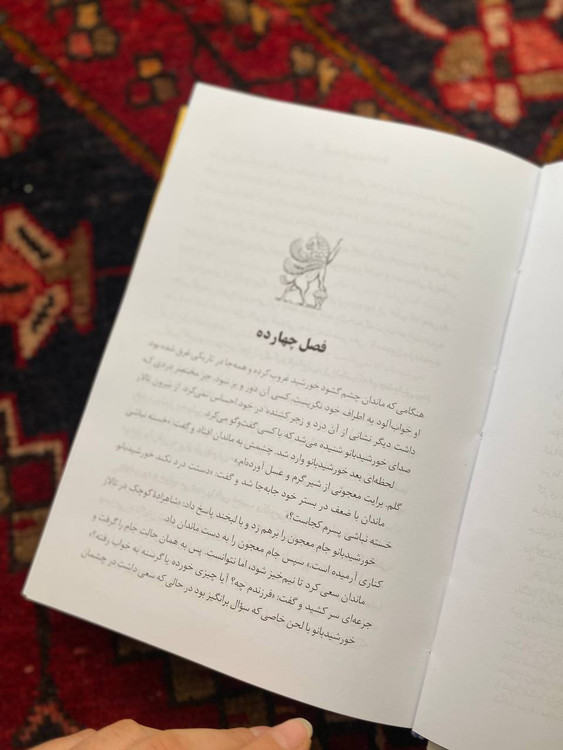 فصل چهارده
هنگامی که ماندان چشم گشود خورشید غروب کرده و همه‌جا در تاریکی غرق شده بود.
او خواب‌آلود به اطراف خود نگریست، کسی آن دور و بر نبود. جز مختصر دردی که
داشت دیگر نشانی از آن درد و زجر کشنده در خود احساس نمی‌کرد. از بیرون تالار
صدای خورشیدبانو شنیده می‌شد که با کسی گفت‌وگو می‌کرد.
لحظه‌ای بعد خورشیدبانو وارد شد. چشمش به ماندان افتاد و گفت: «خسته نباشی
گلم. برایت معجونی از شیر گرم و عسل آورده‌ام.»
ماندان با ضعف در بستر خود جابه‌جا شد و گفت: «دستت درد نکند خورشیدبانو
خسته نباشی پسرم کجاست؟»
خورشیدبانو جام معجون را برهم زد و با لبخند پاسخ داد: «شاهزادهٔ کوچک در تالار
کناری آرمیده است.» سپس جام معجون را به دست ماندان داد.
ماندان سعی کرد تا نیم‌خیز شود، اما نتوانست. پس به همان حالت جام را گرفت و
جرعه‌ای سر کشید و گفت: «فرزندم چه؟ آیا چیزی خورده یا گرسنه به خواب رفته؟»
خورشیدبانو با لحن خاصی که سؤال برانگیز بود در حالی که سعی داشت در چشمان